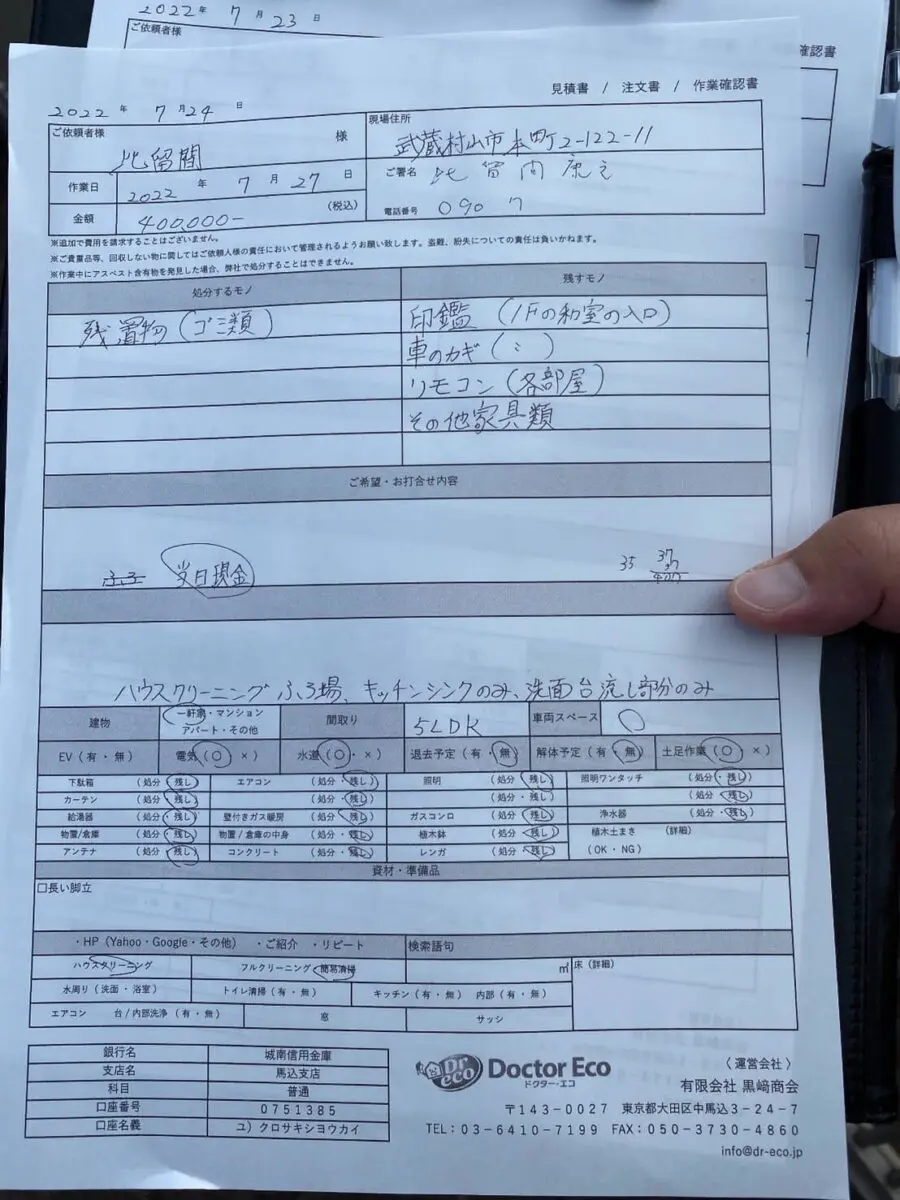 2022年 7月23日
ご依頼者様
確認書
見積書 / 注文書 / 作業確認書
2022年 7月24日
ご依頼者様
比留間 様
現場住所
武蔵村山市本町2-122-11
作業日 2022年 7月27日
ご署名 比留間康之
金額 400,000- (税込)
電話番号 090 7
※追加で費用を請求することはございません。
※ご貴重品等、回収しない物に関してはご依頼人様の責任において管理されるようお願い致します。盗難、紛失についての責任は負いかねます。
※作業中にアスベスト含有物を発見した場合、弊社で処分することはできません。
処分するモノ 残すモノ
残置物(ゴミ類) 印鑑(1Fの和室の入口)
車のカギ(〃)
リモコン(各部屋)
その他家具類
ご希望・お打合せ内容
当日現金 35 37
ハウスクリーニング ふろ場、キッチンシンクのみ、洗面台流し部分のみ
建物 一軒家・マンション アパート・その他 間取り 5LDK 車両スペース ○
EV(有・無) 電気(○ ×) 水道(○・×) 退去予定(有・無) 解体予定(有・無) 土足作業(○ ×)
下駄箱 (処分・残し) エアコン (処分・残し) 照明 (処分・残し) 照明ワンタッチ (処分・残し)
カーテン (処分・残し) (処分・残し) (処分・残し) (処分・残し)
給湯器 (処分・残し) 壁付きガス暖房 (処分・残し) ガスコンロ (処分・残し) 浄水器 (処分・残し)
物置/倉庫 (処分・残し) 物置/倉庫の中身 (処分・残し) 植木鉢 (処分・残し) 植木土まき (詳細)
アンテナ (処分・残し) コンクリート (処分・残し) レンガ (処分・残し) (OK・NG)
資材・準備品
□長い脚立
・HP(Yahoo・Google・その他) ・ご紹介 ・リピート 検索語句
ハウスクリーニング フルクリーニング・簡易清掃 ㎡ 床(詳細)
水周り(洗面・浴室) トイレ清掃(有・無) キッチン(有・無) 内部(有・無)
エアコン 台/内部洗浄(有・無) 窓 サッシ
銀行名 城南信用金庫
支店名 馬込支店
科目 普通
口座番号 0751385
口座名義 ユ)クロサキシヨウカイ
Dr eco Doctor Eco
ドクター・エコ
〈運営会社〉
有限会社 黒﨑商会
〒143-0027 東京都大田区中馬込3-24-7
TEL:03-6410-7199 FAX:050-3730-4860
info@dr-eco.jp